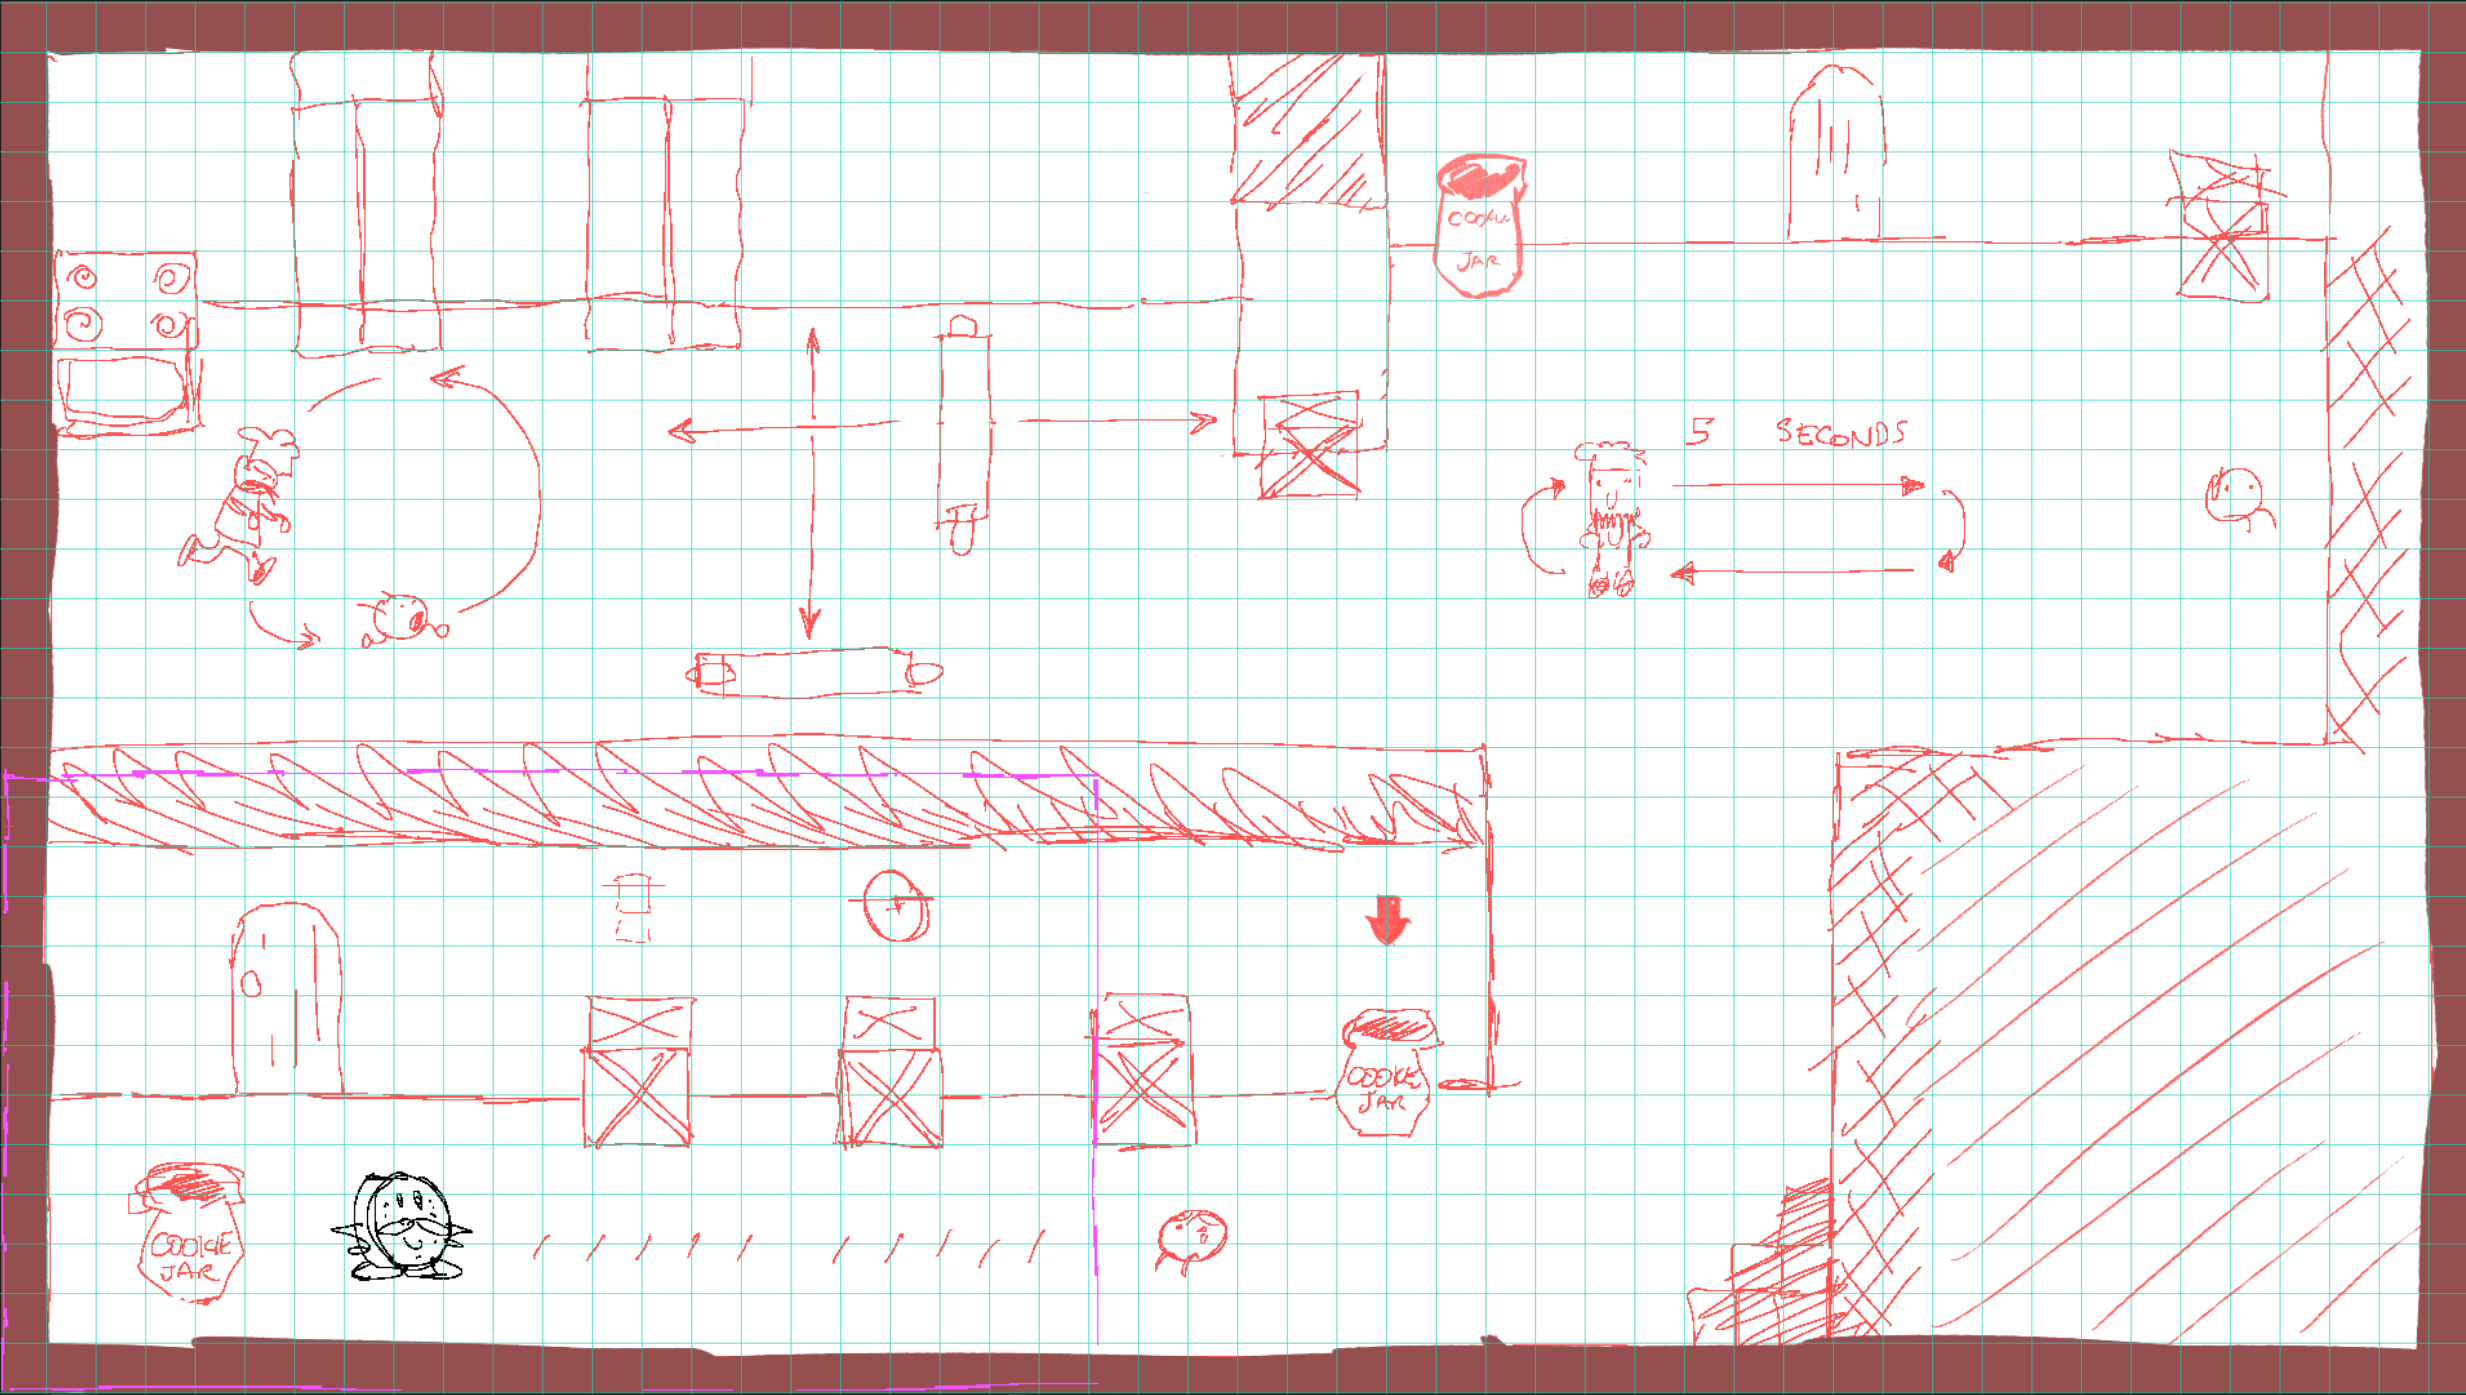 JAR
5 SECONDS
COOKIE
JAR
COOKIE
JAR